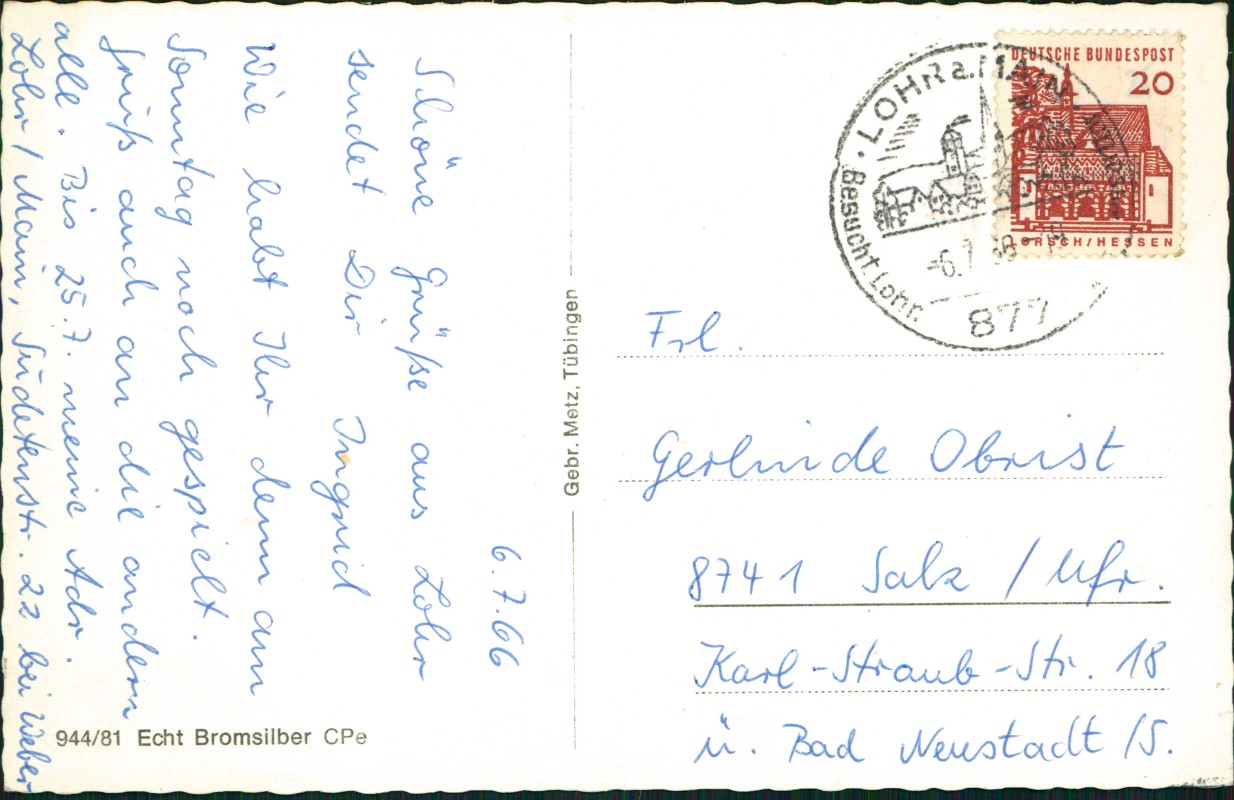 6.7.66
Schöne Grüße aus Lohr
sendet Dir Ingrid
Wie habt Ihr denn am
Sonntag noch gespielt.
Gruß auch an die andern
alle. Bis 25.7. meine Adr.
Lohr / Main, Sudetenstr. 22 bei Weber
944/81 Echt Bromsilber CPe
Gebr. Metz, Tübingen
LOHR a. MAIN
Besucht Lohr.
-6.7 66
877
DEUTSCHE BUNDESPOST
20
LORSCH/HESSEN
Frl.
Gerlinde Obrist
8741 Salz / Ufr.
Karl-Straub-Str. 18
ü. Bad Neustadt /S.